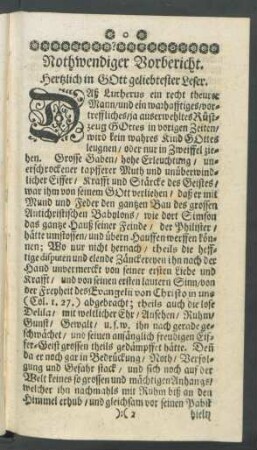 Nothwendiger Vorbericht.
Hertzlich in GOtt geliebtester Leser.
DAß Lutherus ein recht theurer
Mann/und ein warhafftiges/vor-
treffliches/ja auserwehltes Rüst-
zeug GOttes in vorigen Zeiten/
wird kein wahres Kind GOttes
leugnen/oder nur in Zweiffel zie-
hen. Grosse Gaben/ hohe Erleuchtung/ un-
erschrockener tapfferer Muth und unüberwind-
licher Eiffer/ Krafft und Stärcke des Geistes/
war ihm von seinem GOtt verliehen/ daß er mit
Mund und Feder den gantzen Bau des grossen
Antichristischen Babylons/ wie dort Simson
das gantze Hauß seiner Feinde/ der Philister/
hätte umstossen/ und übern Hauffen werffen kön-
nen; Wo nur nicht hernach/ theils die heff-
tige disputen und elende Zänckereyen ihn nach der
Hand unvermerckt von seiner ersten Liebe und
Krafft/ und von seinen ersten lautern Sinn/ von
der Freyheit des Evangelii von Christo in uns
(Col. 1, 27.) abgebracht; theils auch die lose
Delila/ mit weltlicher Ehr/ Ansehen/ Ruhm/
Gunst/ Gewalt/ u. s. w. ihn nach gerade ge-
schwächet/ und seinen anfänglich freudigen Eif-
fer-Geist grossen theils gedämpffet hätte. Deñ
da er noch gar in Bedrückung/ Noth/ Verfol-
gung und Gefahr stack/ und sich noch auf der
Welt keines so grossen und mächtigen Anhangs/
welcher ihn nachmahls mit Ruhm biß an den
Himmel erhub/ und gleichsam vor seinen Pabst
):( 2 hielt/